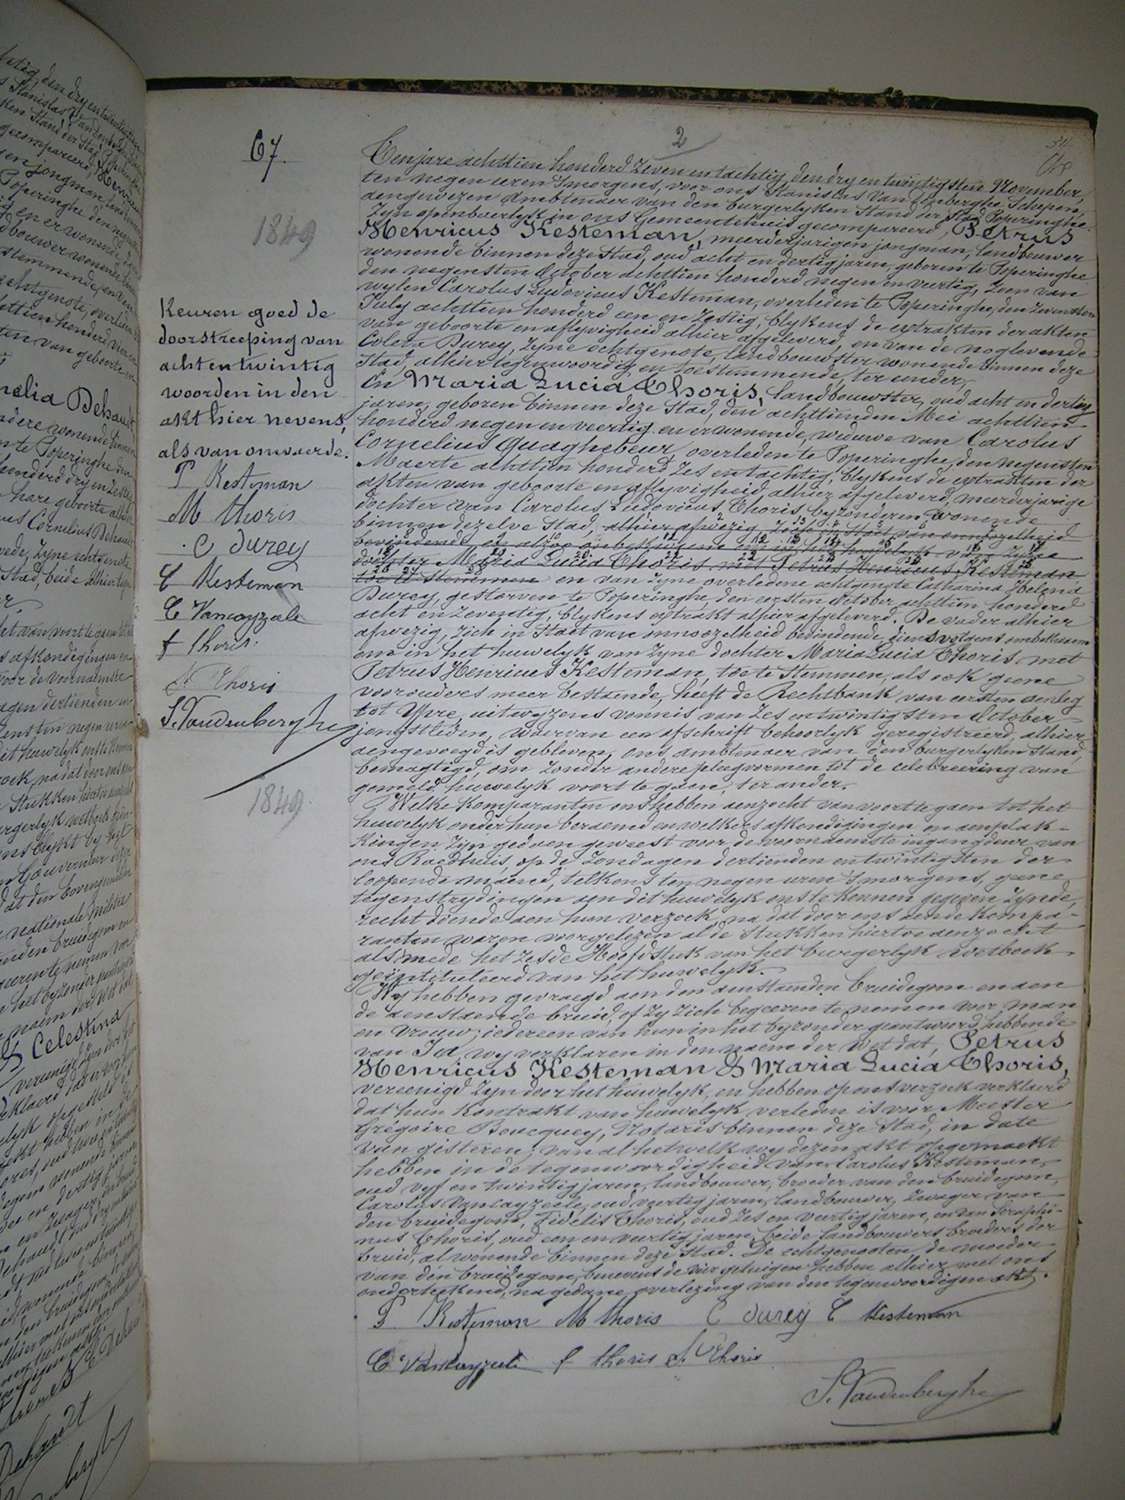 2
67.
1849
Ten jare achttien honderd zeven en tachtig, den dry en twintigsten November,
ten negen uren 's morgens, voor ons Stanislas Vandenberghe, Schepen,
aengewezen ambtenaer van den burgerlyken Stand der Stad Poperinghe,
zyn openbaerlyk in ons Gemeentehuis gecompareerd, Petrus
Henricus Kesteman, meerderjarigen jongman, landbouwer
wonende binnen deze Stad, oud acht en dertig jaren, geboren te Poperinghe
den negensten October achttien honderd negen en veertig, zoon van
wylen Carolus Ludovicus Kesteman, overleden te Poperinghe, den
July achttien honderd een en zestig, blykens de extrakten der akten
van geboorte en aflyvigheid alhier afgeleverd, en van de noglevende
Durey, zyne echtgenote, landbouwster wonende binnen deze
Stad, alhier tegenwoordig en toestemmende, ter eender,
En Maria Lucia Thoris, landbouwster, oud acht en dertig
jaren, geboren binnen deze Stad, den achttienden Mei achttien
honderd negen en veertig en er wonende, weduwe van Carolus
Cornelius Quaghebeur, overleden te Poperinghe, den negensten
Maerte achttien honderd zes en tachtig, blykens de extrakten der
akten van geboorte en aflyvigheid alhier afgeleverd, meerderjarige
dochter van Carolus Ludovicus Thoris, byzonderen, wonende
binnen dezelve Stad, alhier afwezig, zich in Staet van onnoozelheid
bevindende, en alzoo onbekwaem om in het huwelyk van zyne
dochter Maria Lucia Thoris, met Petrus Henricus Kesteman
toe te stemmen en van zyne overledene echtgenote Catharina Helena
Durey, gestorven te Poperinghe, den eersten October achttien honderd
acht en zeventig, blykens extrakt alhier afgeleverd. De vader alhier
afwezig, zich in Staet van onnoozelheid bevindende, diensvolgens onbekwaem
om in het huwelyk van zyne dochter Maria Lucia Thoris met
Petrus Henricus Kesteman, toe te stemmen, als ook geene
voorouders meer bestaende, heeft de Rechtbank van eersten aenleg
tot Ypre, uitwyzens vonnis van zes en twintigsten October
jongstleden, waervan een afschrift behoorlyk geregistreerd, alhier
aengevoegd is gebleven, ons ambtenaer van den burgerlyken Stand,
bemagtigd, om zonder andere plegvormen tot de celebreering van
gemeld huwelyk voort te gaen, ter ander.
Welke komparanten ons hebben aenzocht van voort te gaen tot het
huwelyk onder hun beraemd en welkers afkondigingen en aenplak-
kingen zyn gedaen geweest voor de voornaemste ingangdeur van
ons Raedhuis, op de zondagen dertienden en twintigsten der
loopende maend, telkens ten negen uren 's morgens, geene
tegenstrydigheden aen dit huwelyk ons te kennen gegeven zynde,
recht doende aen hun verzoek, na dat door ons aen de kompa-
ranten waren voorgelezen al de Stukken hiertoe aenzocht
alsmede het zesde Hoofdstuk van het burgerlyk wetboek
geïntituleerd van het huwelyk.
Wy hebben gevraegd aen den aenstaenden bruidegom en aen
de aenstaende bruid, of zy zich begeeren te nemen voor man
en vrouw; iedereen van hun in het byzonder geantwoord hebbende
van Ja, wy verklaren in den naem der Wet dat, Petrus
Henricus Kesteman & Maria Lucia Thoris,
vereenigd zyn door het huwelyk, en hebben op ons verzoek verklaerd
dat hun kontrakt van huwelyk verleden is voor Meester
Grégoire Boucquey, Notaris binnen deze Stad, in date
van gisteren; van al hetwelk wy dezen akt opgemaekt
hebben in de tegenwoordigheid van Carolus Kesteman,
oud vyf en twintig jaren, landbouwer, broeder van den bruidegom,
Carolus Vancayzeele, oud veertig jaren, landbouwer, zwager van
den bruidegom, Fidelis Thoris, oud zes en veertig jaren, en van Seraphi-
nus Thoris, oud een en veertig jaren, beide landbouwers, broeders der
bruid, al wonende binnen deze Stad. De echtgenooten, de moeder
van den bruidegom, benevens de vier getuigen hebben alhier met ons
onderteekend, na gedane voorlezing van den tegenwoordigen akt.
P. Kesteman M Thoris C durey C Kesteman
C Vancayzeele f thoris S Thoris
S. Vandenberghe
Keuren goed de
doorstreeping van
acht en twintig
woorden in den
akt hier nevens,
als van onwaerde.
P Kesteman
M thoris
C durey
C Kesteman
C Vancayzeele
f thoris
S Thoris
S. Vandenberghe
1849